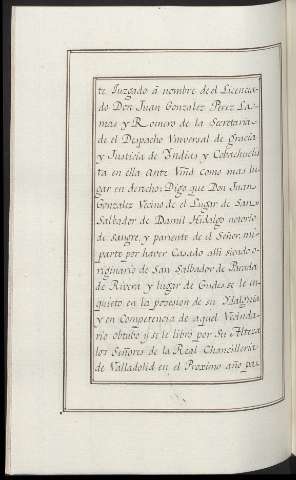 te Juzgado â nombre de el Licencia-
do Don Juan Gonzalez Perez La-
mas y Romero de la Secretaria
de el Despacho Vniversal de Gracia
y Justicia de Yndias y Cobachuelis
ta en ella Ante Vmd Como mas lu
gar en derecho: Digo que Don Juan
Gonzalez Vecino de el Lugar de San-
Salbador de Damil Hidalgo notorio
de sangre, y pariente de el Señor mi
parte por haver Casado alli siendo o-
riginario de San Salbador de Parada
de Rivera y lugar de Gudes se le in-
quieto en la posesion de su Ydalguia
y en Competencia de aquel Vecinda-
rio obtubo y se le libro por Su Alteza
los Señores de la Real Chancilleria
de Valladolid en el Proximo año pa-